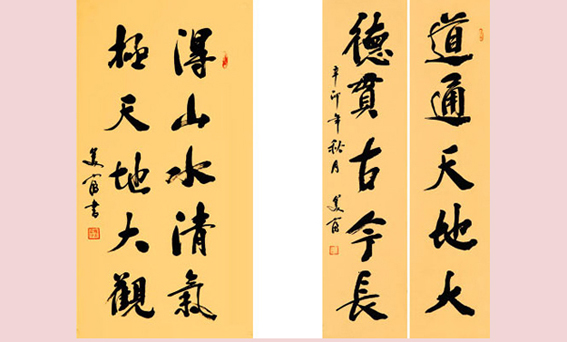 得山水清氣
極天地大觀
道通天地大
德貫古今長
辛卯年秋月